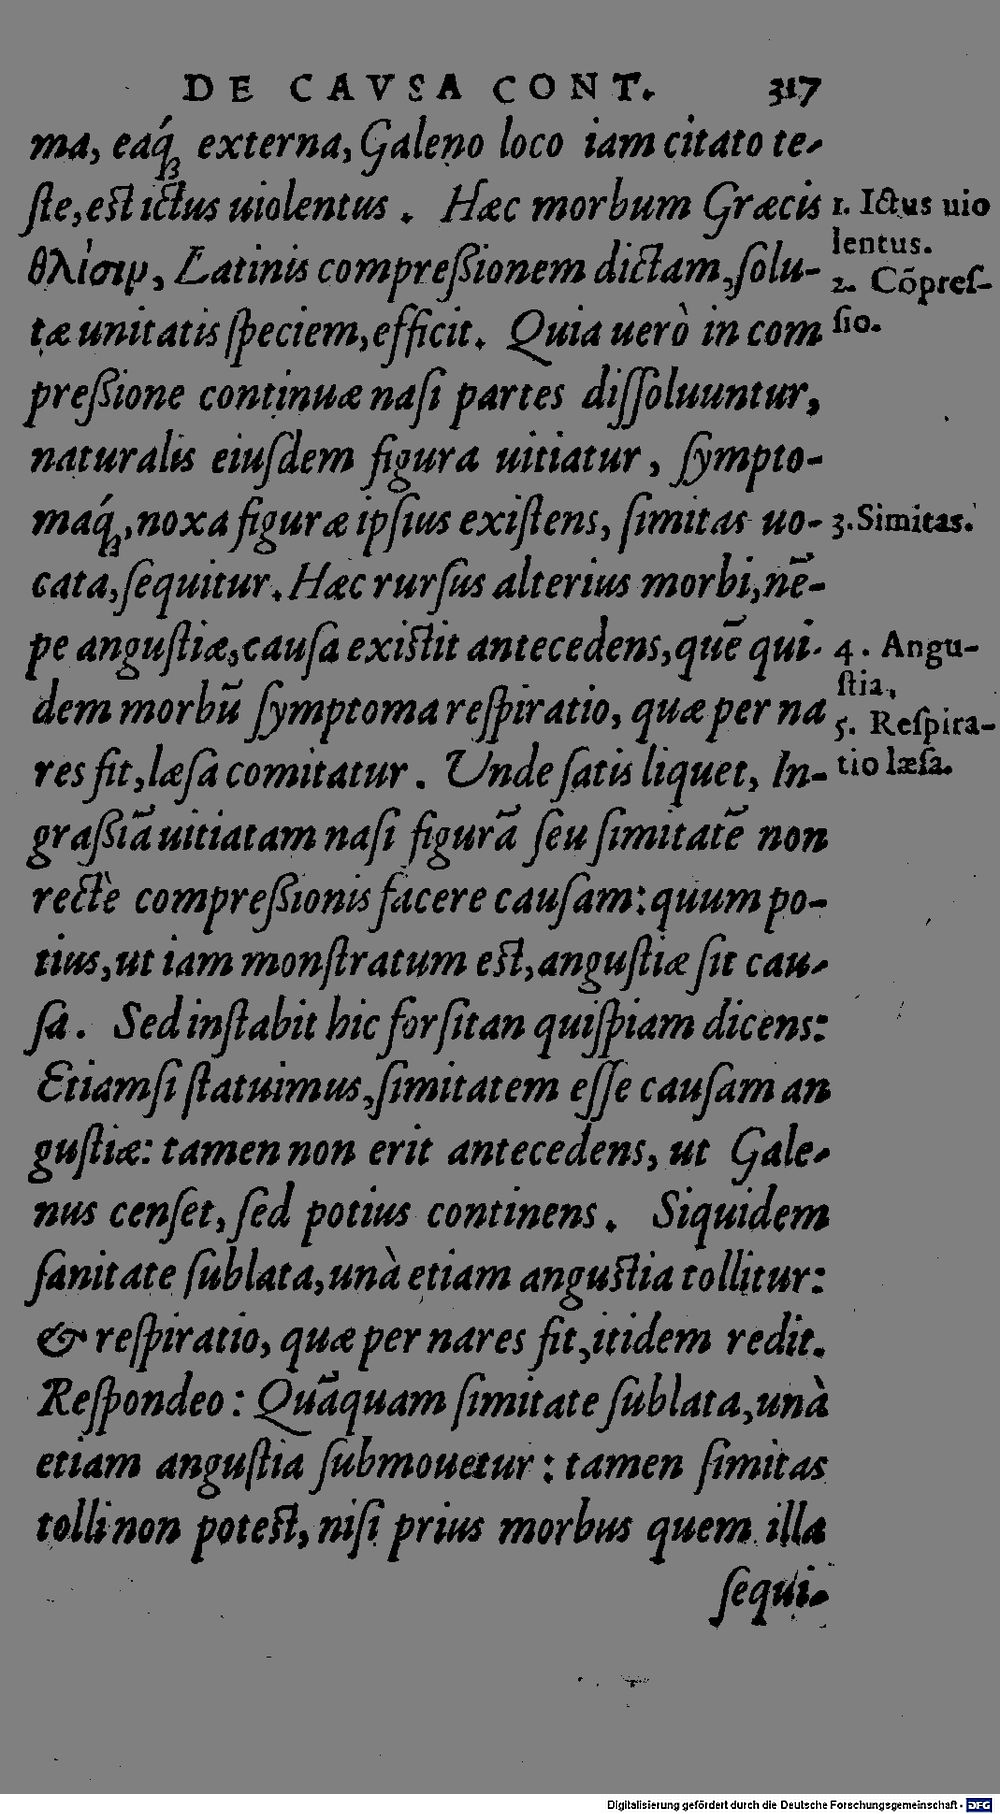 DE CAVSA CONT. 317
ma, eáq́ꝫ externa, Galeno loco iam citato te-
ſte, est ictus uiolentus. Hæc morbum Græcis
θλίσιμ, Latinis compreßionem dictam, ſolu-
tæ unitatis ſpeciem, efficit. Quia uerò in com
preßione continuæ naſi partes diſſoluuntur,
naturalis eiuſdem figura uitiatur, ſympto-
maq́ꝫ, noxa figuræ ipſius exiſtens, ſimitas uo-
cata, ſequitur. Hæc rurſus alterius morbi, nē-
pe anguſtiæ, cauſa existit antecedens, quē qui-
dem morbū ſymptoma reſpiratio, quæ per na
res fit, læſa comitatur. Unde ſatis liquet, In-
graßiā uitiatam naſi figurā ſeu ſimitatē non
rectè compreßionis facere cauſam: quum po-
tius, ut iam monſtratum est, anguſtiæ ſit cau-
ſa. Sed inſtabit hic forſitan quiſpiam dicens:
Etiamſi ſtatuimus, ſimitatem eſſe cauſam an
guſtiæ: tamen non erit antecedens, ut Gale-
nus cenſet, ſed potius continens. Siquidem
ſanitate ſublata, unà etiam angustia tollitur:
& reſpiratio, quæ per nares fit, itidem redit.
Reſpondeo: Quāquam ſimitate ſublata, unà
etiam anguſtia ſubmouetur: tamen ſimitas
tolli non potest, niſi prius morbus quem illa
ſequi-
1. Ictus uio
lentus.
2. Cõpreſ-
ſio.
3. Simitas.
4. Angu-
ſtia.
5. Reſpira-
tio læſa.
Digitalisierung gefördert durch die Deutsche Forschungsgemeinschaft - DFG